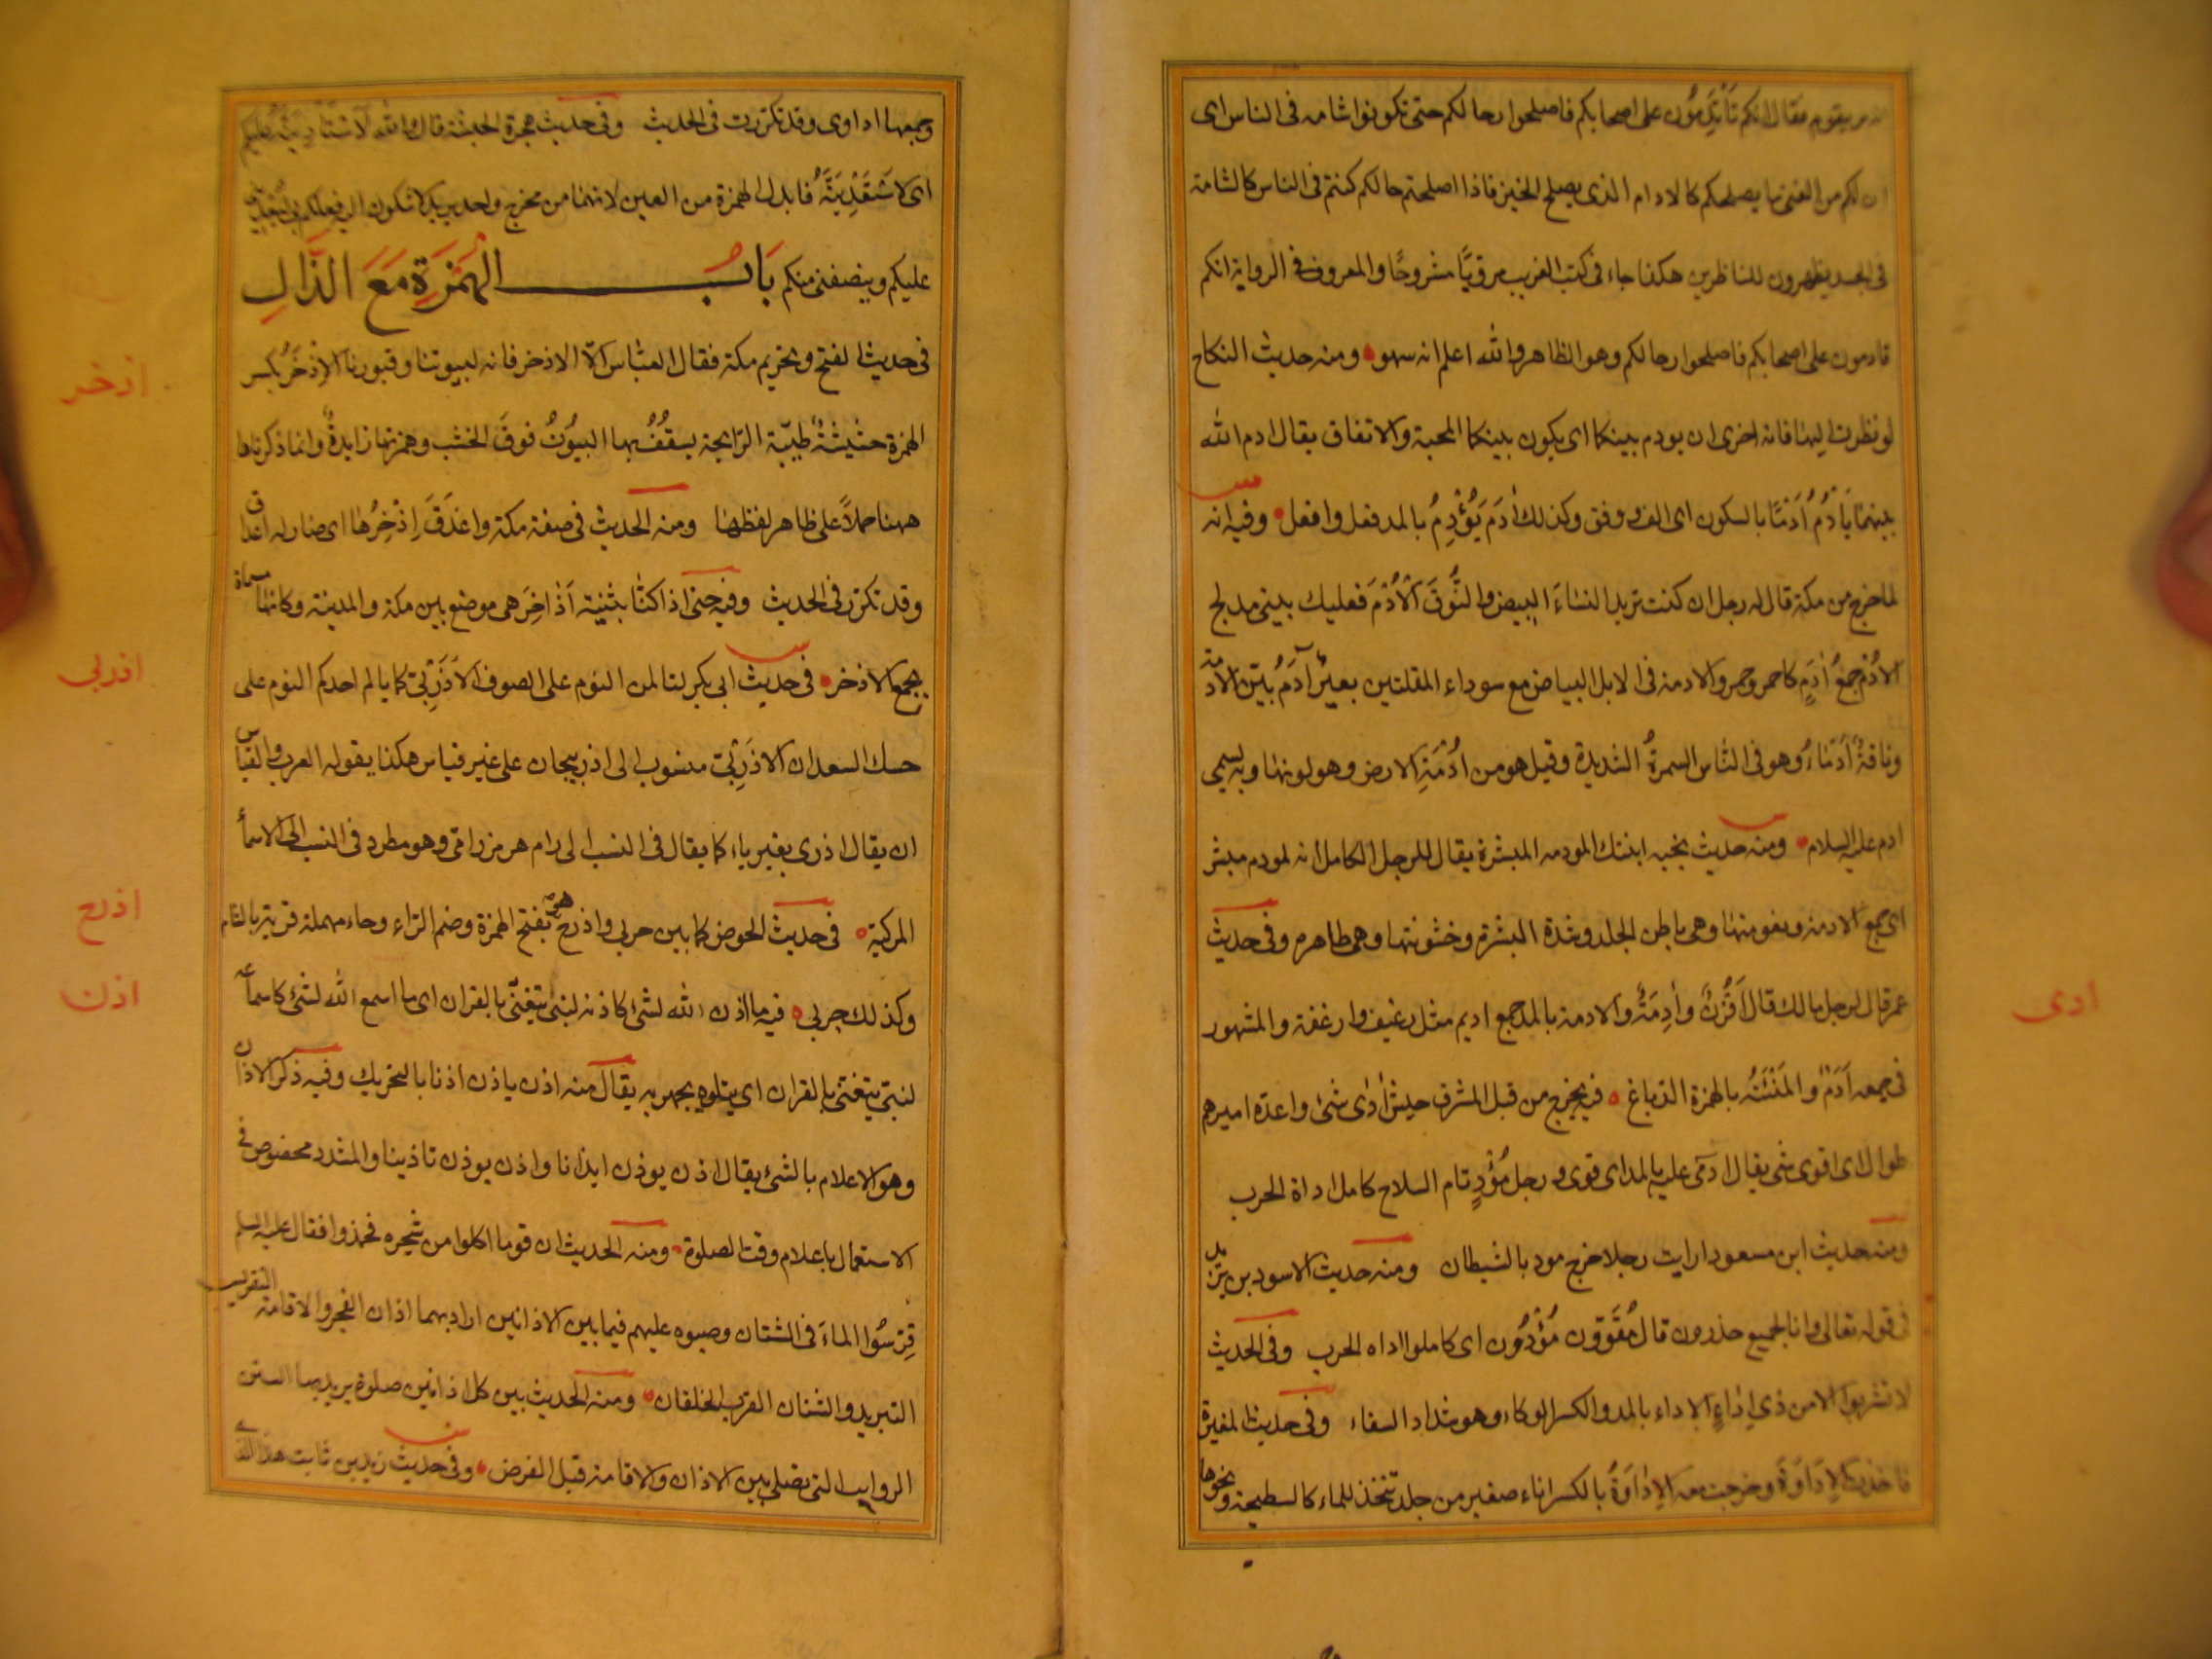 مر بقوم فقال انكم تَأتَدِمُون على اصحابكم فاصلحوا رحالكم حتى تكونوا شامه فى الناس اى
ان لكم من الغنى ما يصلحكم كالادام الذى يصلح الخبز فاذا اصلحتم حالكم كنتم فى الناس كالشامة
فى الجسد يظهرون للناظرين هكذا جاء فى كتب الغريب مرويًّا مشروحًا والمعروف فى الرواية انكم
قادمون على اصحابكم فاصلحوا رحالكم وهو الظاهر والله اعلم انه سهو ومنه حديث النكاح
لو نظرت اليها فانه احرى ان يودم بينكما اى يكون بينكما المحبة والاتفاق يقال ادم الله
بينهما يَأدِمُ اَدْمًا بالسكون اى الف ووفق وكذلك اٰدَمَ يُؤْدِمُ بالمد فعل وافعل وفيه انه
لما خرج من مكة قال له رجل ان كنت تريد النساءَ البيض والنُّوقَ الْاُدْمَ فعليك ببنى مدلج
الادْم جمعُ اٰدَمٍ كاحمر وحمر والادمة فى الابل البياض مع سوداء المقلتين بعيرٌ آدَمُ بيّن الادمة
وناقةٌ اَدْمَاءُ وهو فى الناس السمرةُ الشديدة وقيل هو من اُدْمَةِ الارض وهو لونها وبه سمى
ادم عليه السلام ومنه حديث نجبه ابنتك المودمه المبشرة يقال للرجل الكامل انه لمودم مبشر
اى جمع الادمة ونعومتها وهى باطن الجلد وشدة البشرة وخشونتها وهى ظاهره وفى حديث
عمر قال لرجل مالك قال اَقْرُنٌ وأدِمَةٌ والادمة بالمد جمع اديم مثل رغيف وارغفة والمشهور
فى جمعه اَدَمٌ والمَنْئَةُ بالهمزة الدباغ فيه يخرج من قبل المشرق جيش اٰدٰى شئ واعدّه اميرهم
طوال اى اقوى شى يقال ادنى عليه بالمد اى قوى ورجل مُؤْدٍ تام السلاح كامل اداة الحرب
ومنه حديث ابن مسعود ارايت رجلا خرج مود بالشيطان ومنه حديث الاسود بن يزيد
فى قوله تعالى وانا لجميع حذرون قال مُقْوُون مُؤْدُون اى كاملوا اداه الحرب وفى الحديث
لا تشربوا الا من ذي اِدَاءٍ الاداء بالمد والكسر الوكاء وهو شداد السقاء وفى حديث المغيرة
فاخذت الْاِدَاوَةَ وخرجت معه الْاِدَاوَةُ بالكسر اناء صغير من جلد تتخذ للماء كالسطيحة ونحوها
أدى
وجمعها اداوى وقد تكررت فى الحديث وفى حديث هجرة الحبشة قال والله لاستادينه عليكم
اى لاَسْتَعْدِيَنَّهُ فابدل الهمزة من العين لانهما من مخرج واحد يريد لاشكون اليه فعلكم بى ليعدينى
عليكم وينصفنى منكم بَابُ الهَمْزَةِ مَعَ الذَّالِ
فى حديث الفتح وتحريم مكة فقال العبّاس الّا الاذخر فانه لبيوتنا وقبورنا الْاِذْخِرُ بكسر
الهمزة حشيشةٌ طيّبة الرّايحة يسقفُ بها البيُوتُ فوقَ الخشب وهمزتها زايدةٌ وانما ذكرناها
ههنا حملاً على ظاهر لفظها ومنه الحديث فى صفة مكة واعذَقَ اِذْخِرُها اى صار له اعذاق
وقد تكرّر فى الحديث وفيه حتى اذا كنّا بثنية اَذَاخِرَ هى موضع بين مكة والمدينة وكانها مسماة
بجمع الاذخر فى حديث ابى بكر لتالمن النوم على الصوف الاَذْرَبِىّ كما يالم احدكم النوم على
حسك السعدان الاذْرَبِىّ منسوب الى اذربيجان على غير قياس هكذا يقوله العرب والقياس
ان يقال اذرى بغير باء كما يقال فى النسب الى رام هرمز رامى وهو مطرد فى النسب الى الاسماء
المركبة فى حديث الحوض كما بين جربى واذرح هى بفتح الهمزة وضم الرّاء وحاء مهملة قرية بالشام
وكذلك جربى فيه ما اذن الله لشئ كاذنه لنبى يتغنّى بالقران اى ما اسمع الله لشئ كاسماعه
لنبىّ يتغنى بالقران اى يتلوه يجهر به يقال منه اذن ياذن اذنا بالتحريك وفيه ذكر الاذان
وهو الاعلام بالشئ يقال اذن يوذن ايذانا واذن يوذن تاذينا والمشدد مخصوص فى
الاستعمال باعلام وقت الصلوة ومنه الحديث ان قوما اكلوا من شجره فخمدوا فقال عليه السلم
قرّسُوا الماءَ فى الشنان وصبوه عليهم فيما بين الاذانين اراد بهما اذان الفجر والاقامة التقريس
التبريد والشنان القرب الخلقان ومنه الحديث بين كل اذانين صلوة يريد بها السنن
الرواتب التى تصلى بين الاذان والاقامة قبل الفرض وفى حديث زيد بن ثابت هذا الذى
اذخر
اذربى
اذرح
اذن